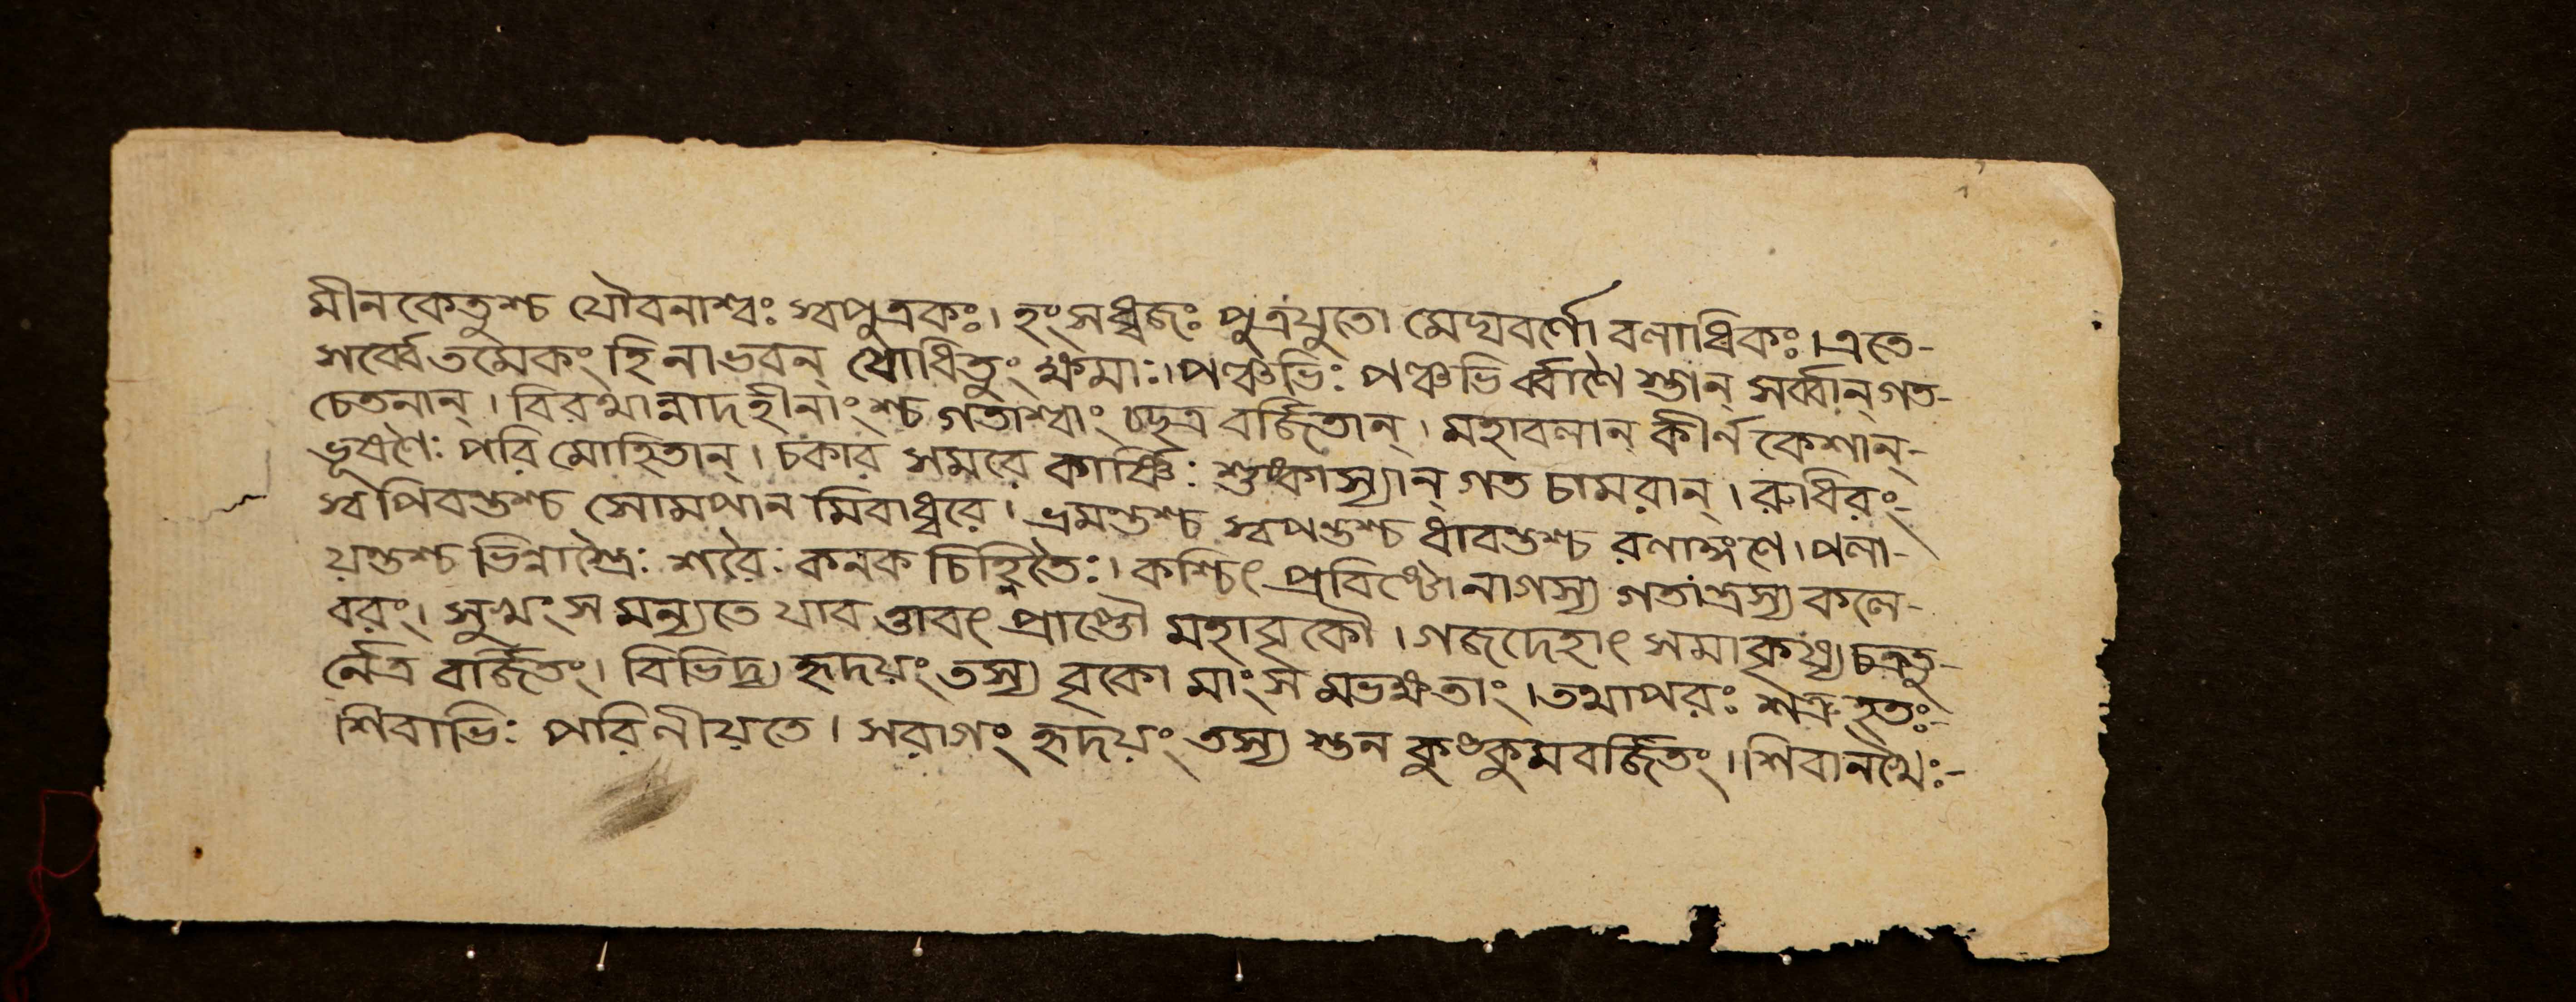 মীনকেতুশ্চ যৌবনাশ্বঃ স্বপুত্রকঃ। হংসধ্বজঃ পুত্রযুতো মেঘবর্ণো বলাধিকঃ। এতে-
সর্ব্বে তমেকং হি নাভবন্ যোধিতুং ক্ষমাঃ। পঞ্চভিঃ পঞ্চভির্ব্বাণৈ স্তান্ সর্ব্বান্ গত-
চেতনান্। বিরথান্নাদহীনাংশ্চ গতাশ্বাং চ্ছত্র বর্জিতান্। মহাবলান্ কীর্ন কেশান্-
ভূষণৈঃ পরিমোহিতান্। চকার সমরে কার্ষ্ণিঃ শুষ্কাস্যান্ গত চামরান্। রুধিরং-
স্বপিবন্তশ্চ সোমপান মিবাধ্বরে। ভ্রমন্তশ্চ স্বপন্তশ্চ ধাবন্তশ্চ রণাঙ্গণে। পলা-
য়ন্তশ্চ ভিন্নাস্তৈঃ শরৈঃ কনক চিহ্নিতৈঃ। কশ্চিৎ প্রবিষ্টো নাগস্য গতান্ত্রস্য কলে-
বরং। সুখং স মন্যতে যাবত্তাবৎ প্রাপ্তৌ মহাবৃকৌ। গজদেহাৎ সমাকৃষ্য চক্রতু-
র্নেত্র বর্জিতং। বিভিদ্য হৃদয়ং তস্য বৃকো মাংস মভক্ষতাং। তথাপরঃ শত্রুহতঃ-
শিবাভিঃ পরিনীয়তে। সরাগং হৃদয়ং তস্য স্তন কুঙ্কুমবর্জিতং। শিবানখৈঃ-